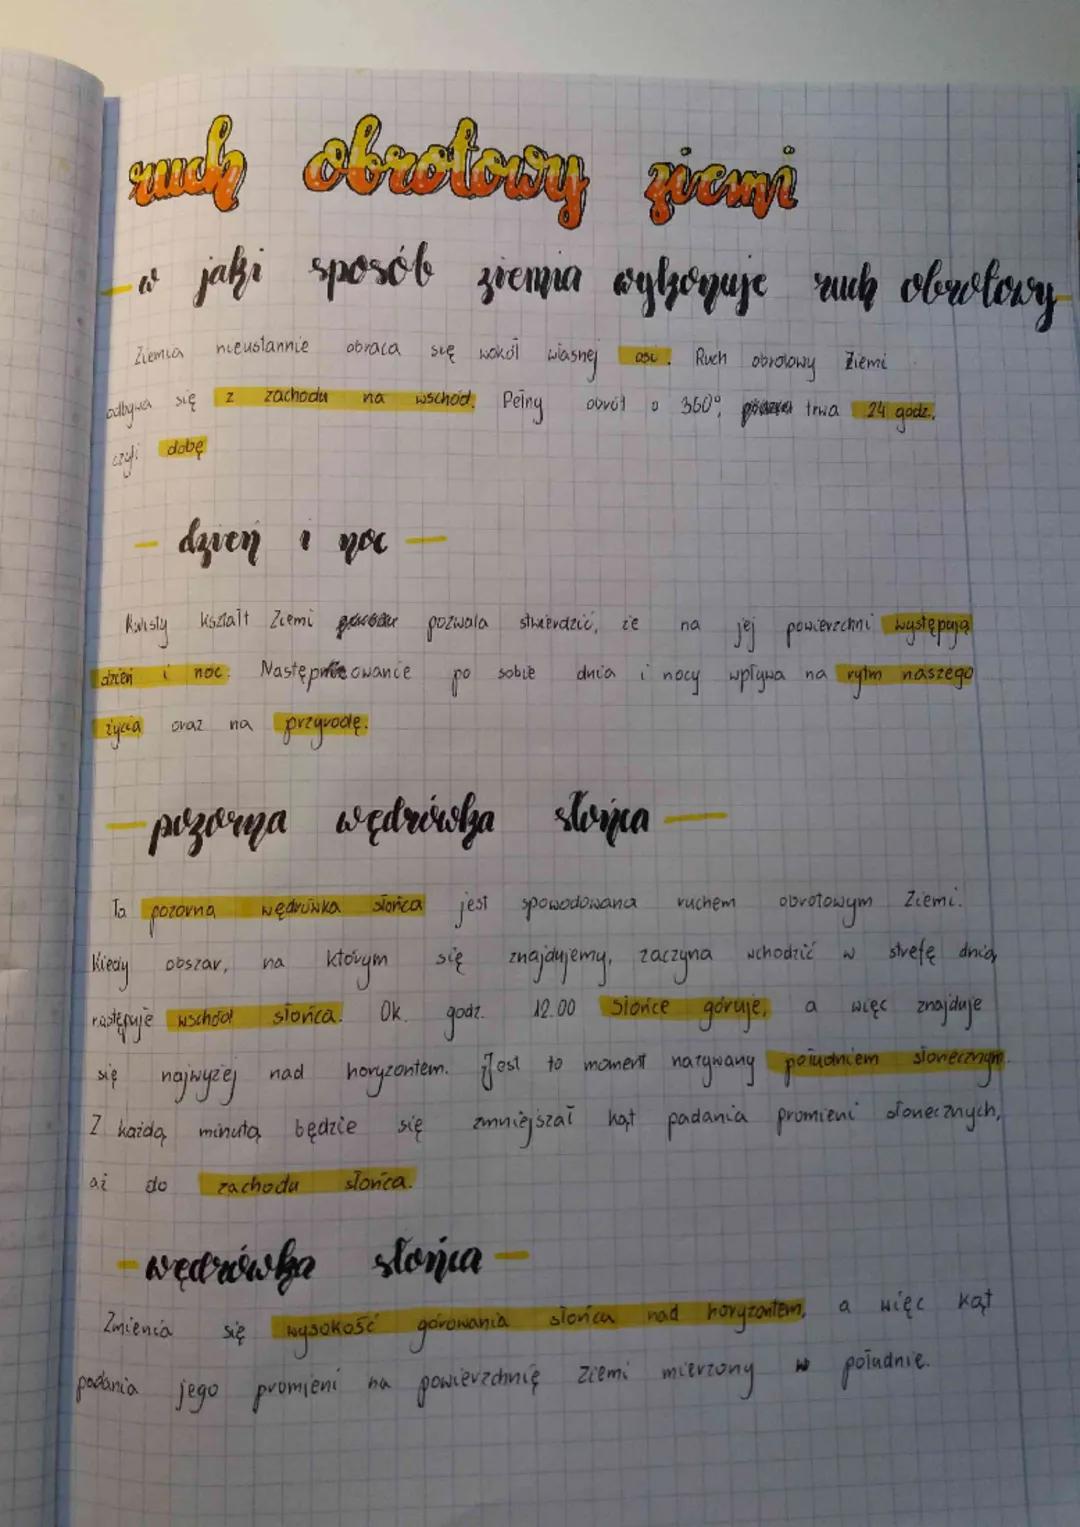 ruch obrotowy ziemi
- w jaki sposób ziemia wykonuje ruch obrotowy -
Ziemia nieustannie obraca się wokół własnej osi. Ruch obrotowy Ziemi
odbywa się z zachodu na wschód. Pełny obrót o 360°, trwa 24 godz.,
czyli dobę
- dzień i noc -
kształt Ziemi pozwala stwierdzić, że na jej powierzchni występują
dzień i noc. Następowanie po sobie dnia i nocy wpływa na rytm naszego
życia oraz na przyrodę.
- pozorna wędrówka słońca -
Ta pozorna wędrówka słońca jest spowodowana ruchem obrotowym Ziemi.
Kiedy obszar, na którym się znajdujemy, zaczyna wchodzić w strefę dnia,
następuje wschód słońca. Ok. godz. 12.00 Słońce góruje, a więc znajduje
się najwyżej nad horyzontem. Jest to moment nazywany południem słonecznym.
Z każdą minutą będzie się zmniejszał kąt padania promieni słonecznych,
aż do zachodu słońca.
- wędrówka słońca -
Zmienia się wysokość górowania słońca nad horyzontem, a więc kąt
padania jego promieni na powierzchnię Ziemi mierzony w południe.